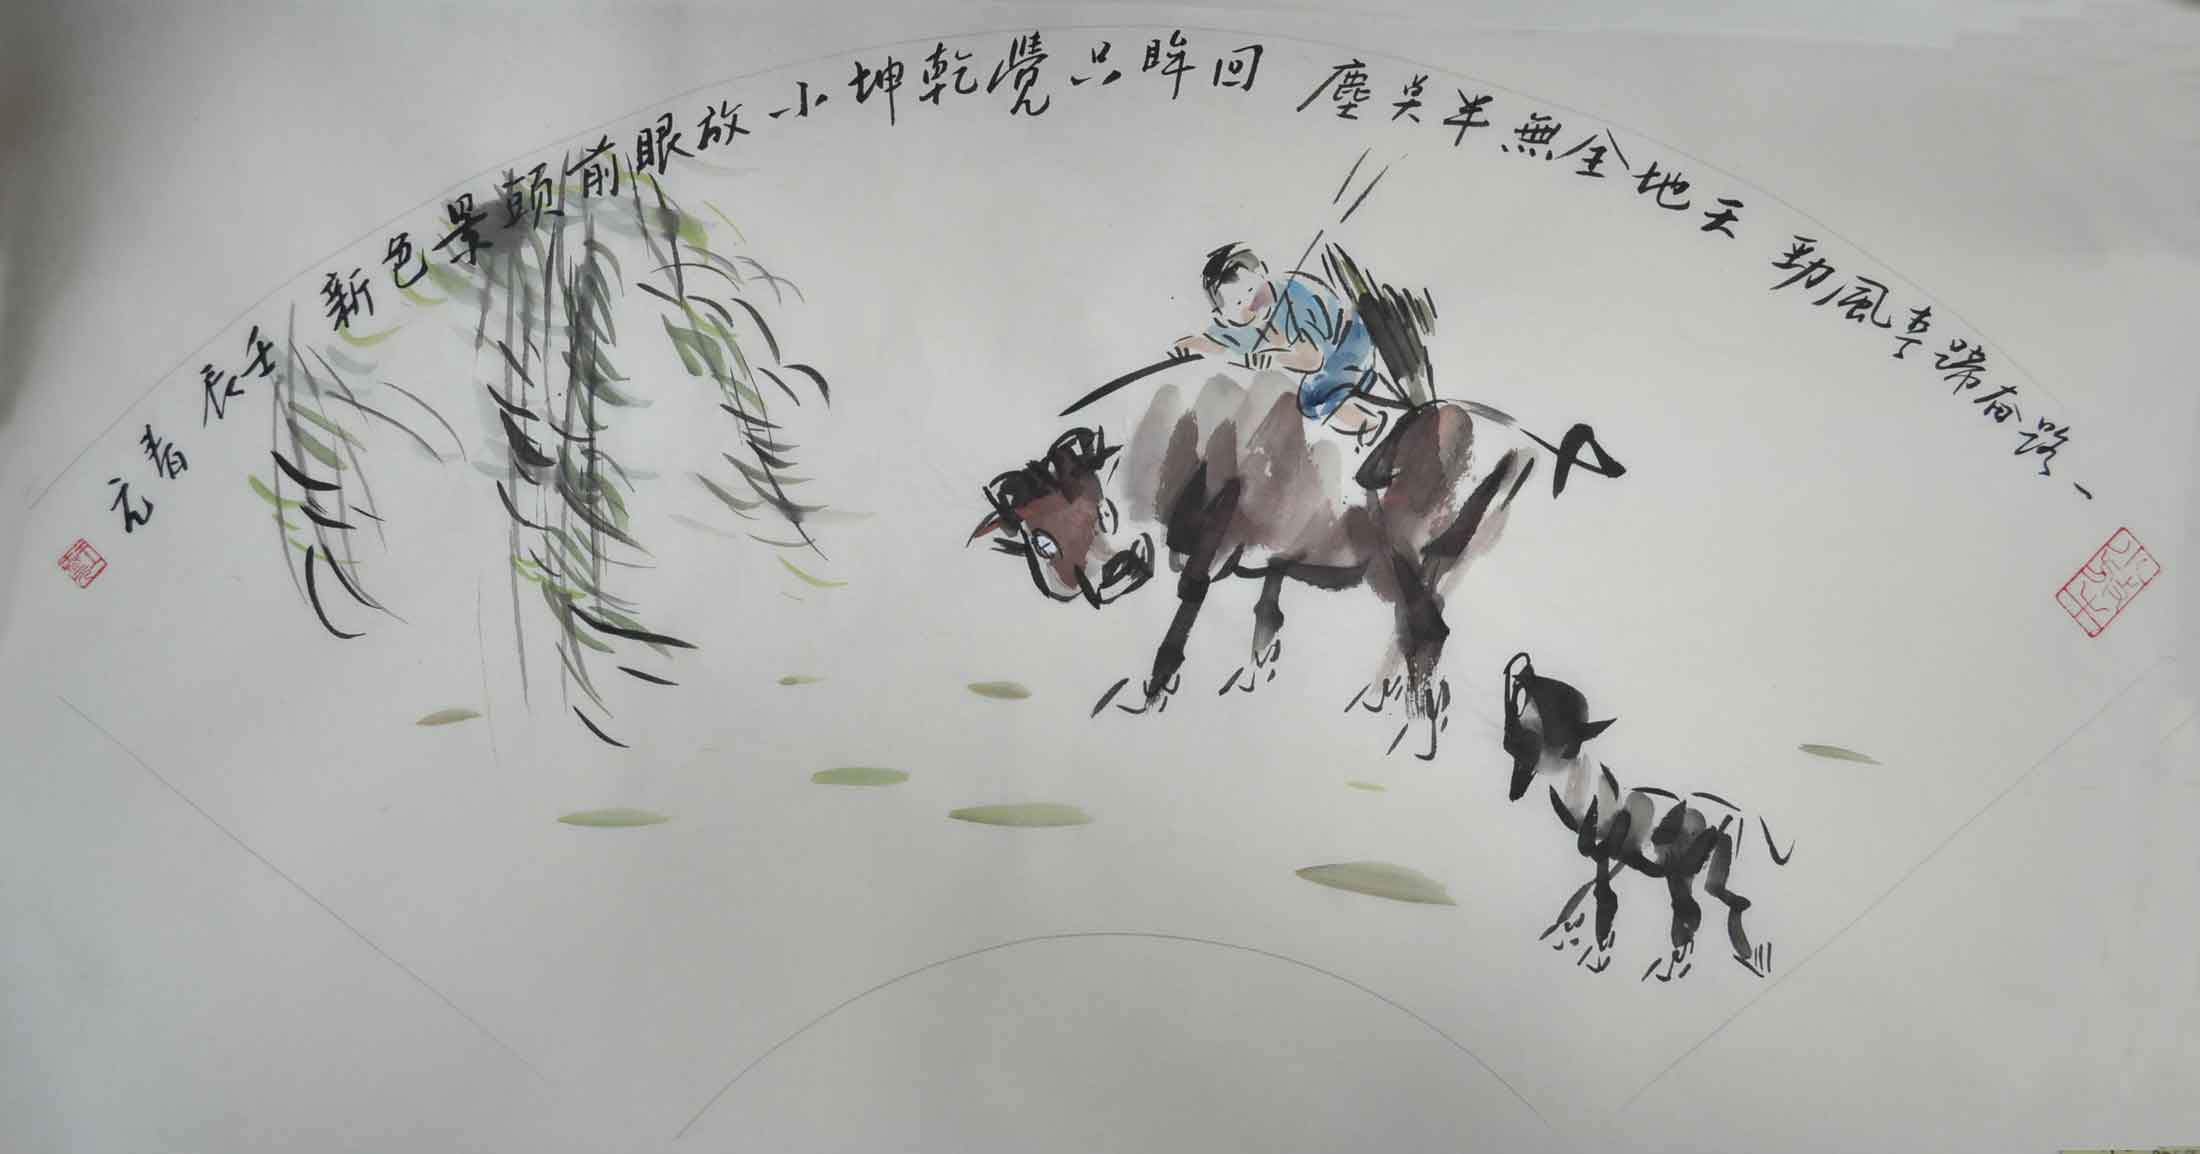 一路奋蹄風勁 天地全無半奌塵 回眸只覺乾坤小放眼前頭景色新 壬辰春元